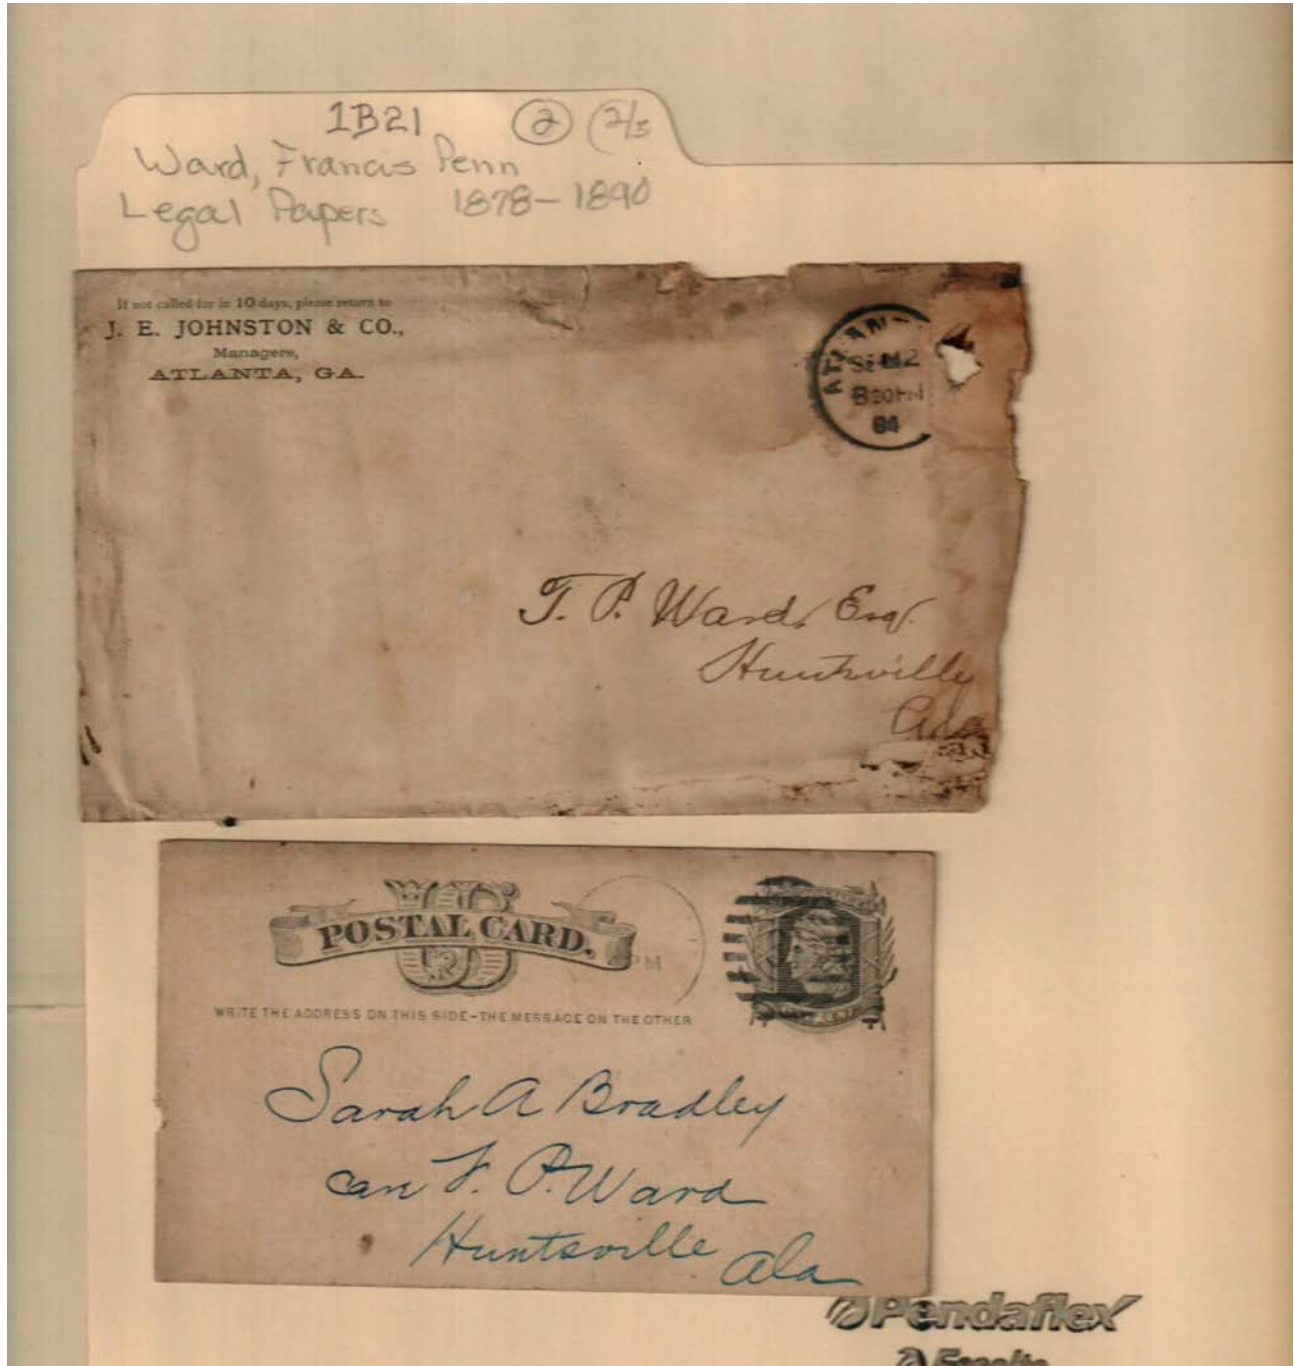 1B21 (2) (2/3
Ward, Francis Penn
Legal Papers 1878-1890
If not called for in 10 days, please return to
J. E. JOHNSTON & CO.,
Managers,
ATLANTA, GA.
8 30 PM
84
F. P. Ward, Esq.
Huntsville
Ala
US
POSTAL CARD.
PM
WRITE THE ADDRESS ON THIS SIDE-THE MESSAGE ON THE OTHER
Sarah A Bradley
care F. P. Ward
Huntsville Ala
Pendaflex
Esselte